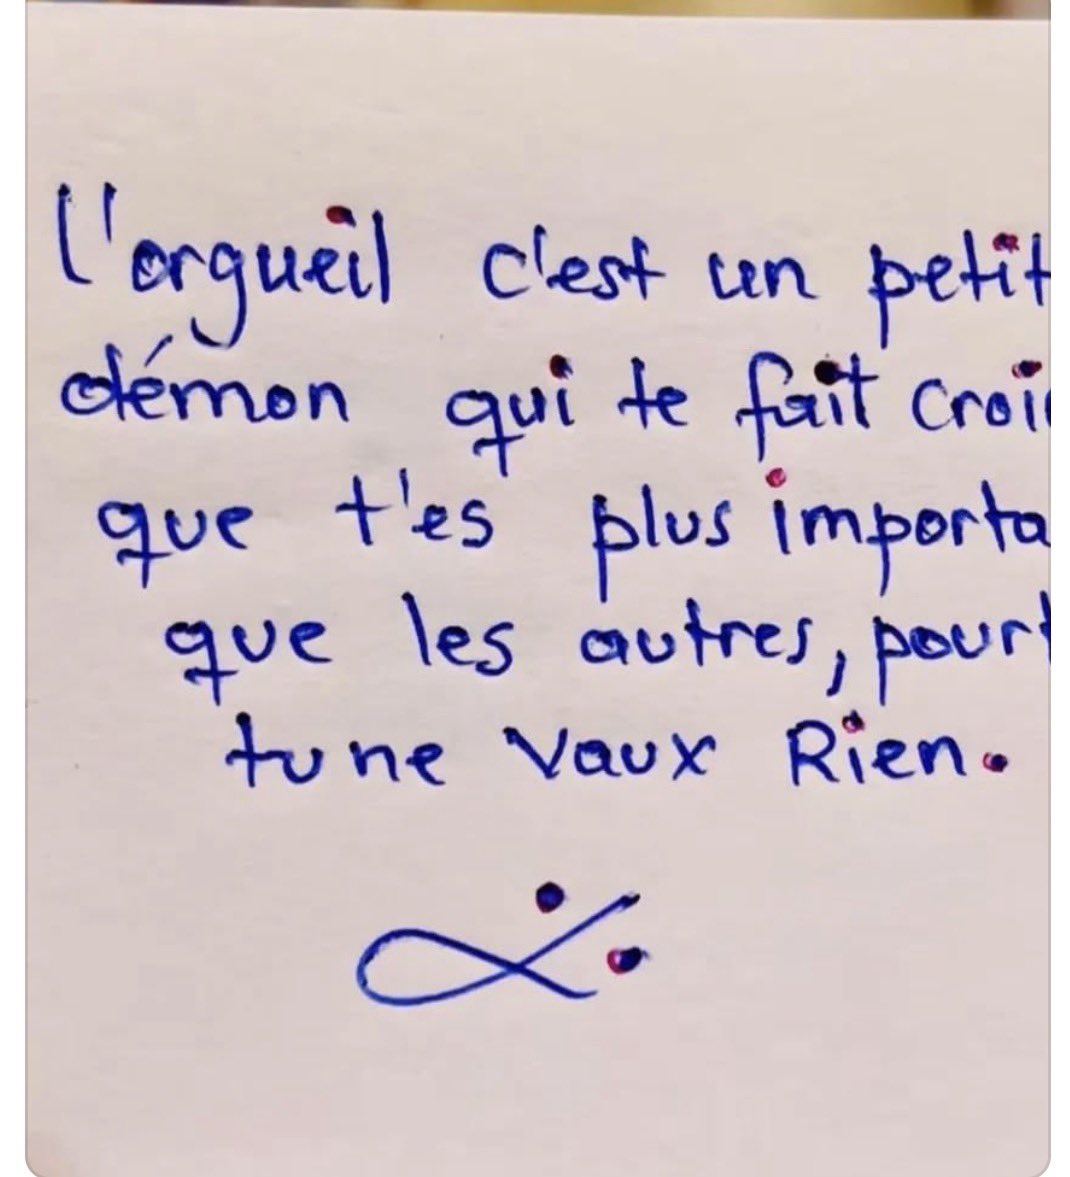 l'orgueil c'est un petit
démon qui te fait croi
que t'es plus importa
que les autres, pourt
tu ne vaux Rien.